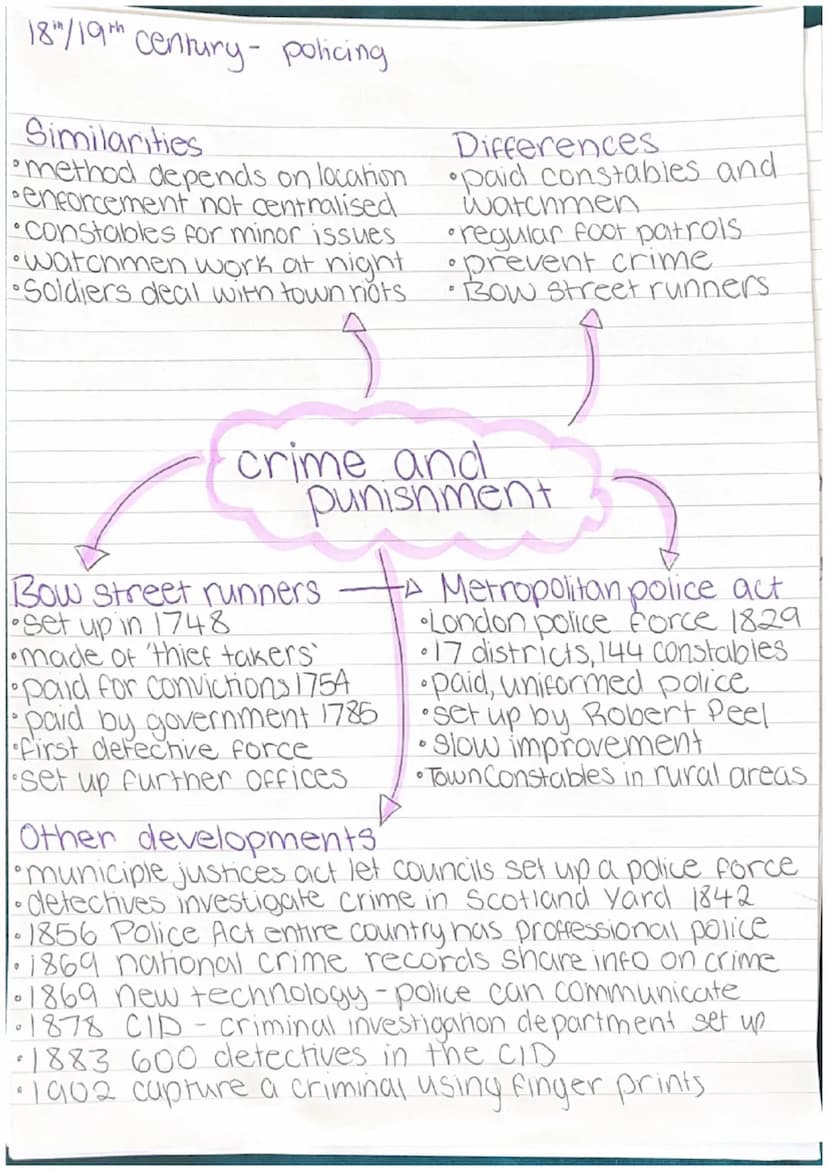 18th/19th century- policing
Similarities
•method depends on location
•enforcement not centralised
•constables for minor issues
•watchmen work at night
•Soldiers deal with town riots
Differences
•paid constables and
watchmen
•regular foot patrols
•prevent crime
•Bow street runners
crime and
punishment
Bow street runners
•set up in 1748
•made of 'thief takers'
•paid for convictions 1754
•paid by government 1785
•first detective force
•set up further offices
Metropolitan police act
•London police force 1829
•17 districts, 144 constables
•paid, uniformed police
•set up by Robert Peel
•slow improvement
•Town Constables in rural areas
Other developments
•municiple justices act let councils set up a police force
•detectives investigate crime in Scotland Yard 1842
•1856 Police Act entire country has proffessional police
•1869 national crime records share info on crime
•1869 new technology - police can communicate
•1878 CID - criminal investigation department set up
•1883 600 detectives in the CID
•1902 capture a criminal using finger prints